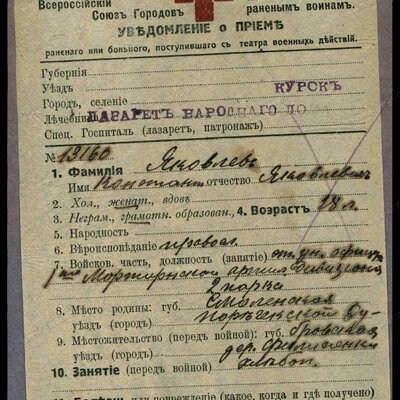 Всероссійскій
Союзъ Городовъ раненымъ воинамъ.
УВѢДОМЛЕНІЕ о ПРІЕМѢ
раненаго или больного, поступившаго съ театра военныхъ дѣйствій.
Губернія
Уѣздъ КУРСКЪ
Городъ, селеніе
Лѣчебн ЛАЗАРЕТЪ НАРОДНАГО ДО
Спец. Госпиталь (лазаретъ, патронажъ)
№ 13160
1. Фамилія Яковлевъ
Имя Констант отчество Яковлевичъ
2. Хол., женат., вдовъ
3. Неграм., грамотн. образован., 4. Возрастъ 28 л.
5. Народность
6. Вѣроисповѣданіе правосл.
7. Войсков. часть, должность (занятіе)
Мортирнской дивизіона
2 парка
8. Мѣсто родины: губ. Смоленская
уѣздъ (городъ) порѣчской
9. Мѣстожительство (передъ войной): губ.
уѣздъ (городъ) дер.
10. Занятіе (передъ войной) хлѣбоп.
или поврежденіе (какое, когда и гдѣ получено)